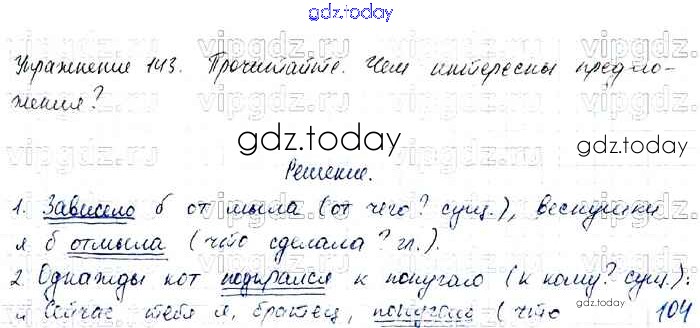 gdz.today
Упражнение 143. Прочитайте. Чем интересны предло-
жения?
gdz.today
Решение.
1. Зависело б от мыла (от чего? сущ.), веснушки
я б отмыла (что сделала? гл.).
2. Однажды кот подирался к попугаю (к кому? сущ.):
и Сейчас тебя я, братец, попугаю (что
104